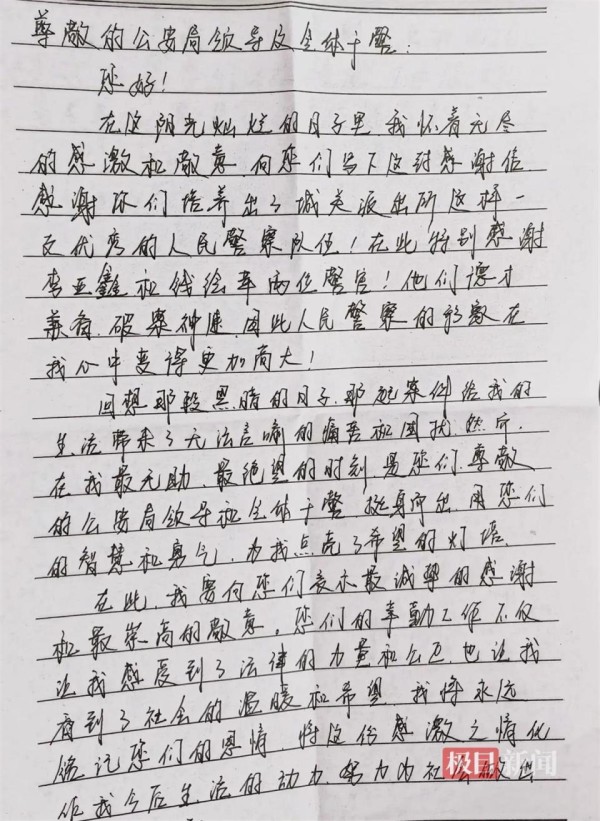 尊敬的公安局领导及全体干警:
您好!
在这阳光灿烂的日子里 我怀着无尽
的感激和敬意,向您们写下这封感谢信.
感谢你们培养出了城关派出所这样一
支优秀的人民警察队伍!在此特别感谢
李亚鑫和钱绘羊两位警官!他们德才
兼备.破案神速.因此人民警察的形象在
我心中变得更加高大!
回想那段黑暗的日子.那起案件给我的
生活带来了无法言喻的痛苦和困扰.然而.
在我最无助、最绝望的时刻.是您们.尊敬
的公安局领导和全体干警 挺身而出.用您们
的智慧和勇气.为我点亮了希望的灯塔.
在此.我要向您们表示最诚挚的感谢
和最崇高的敬意。您们的辛勤工作不仅
让我感受到了法律的力量和公正.也让我
看到了社会的温暖和希望.我将永远
铭记您们的恩情.将这份感激之情化
作我今后生活的动力.努力为社会做出
极目新闻